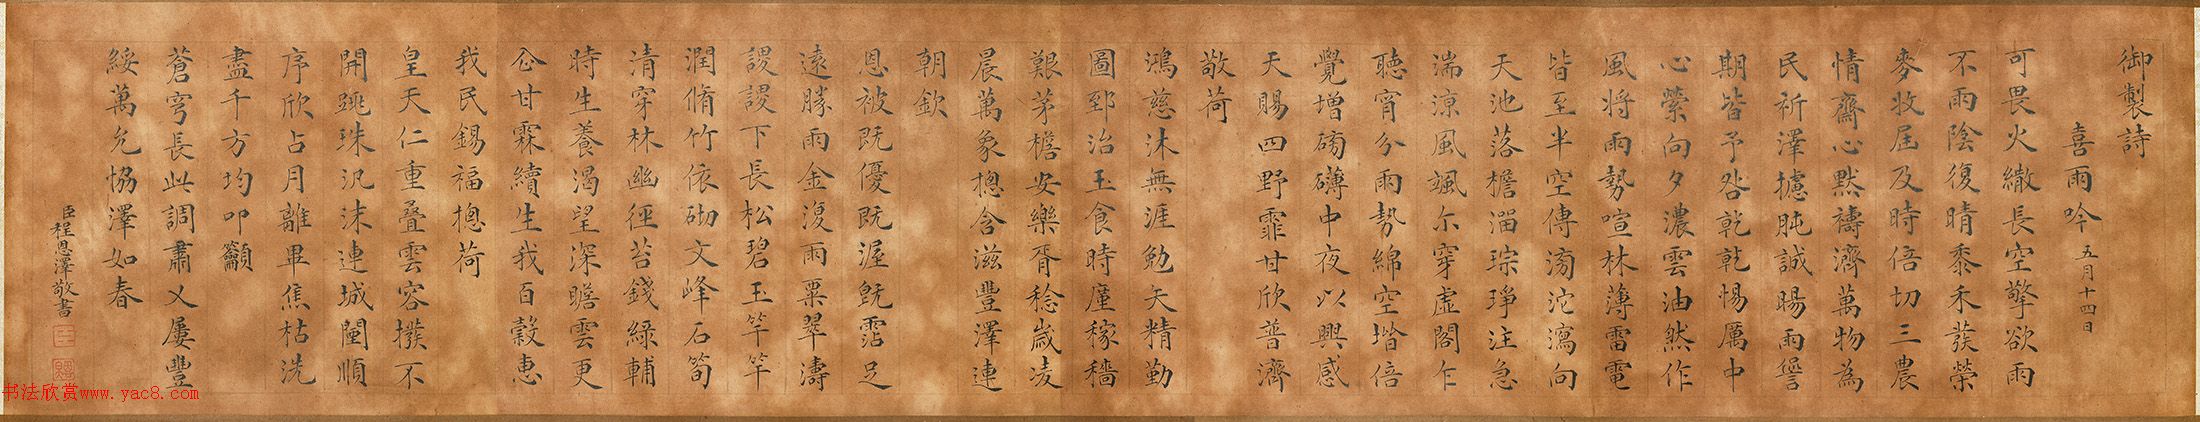 御製詩
喜雨吟 五月十四日
可畏火繖長空擎欲雨
不雨陰復晴黍禾蕟榮
麥收屆及時倍切三農
情齋心默禱濟萬物為
民祈澤攄肫誠暘雨愆
期皆予咎乾乾惕厲中
心縈向夕濃雲油然作
風將雨勢喧林薄雷電
皆至半空傳滂沱瀉向
天池落檐溜琮琤注急
湍涼風颯尒穿虛閣乍
聽宵分雨勢綿空堦倍
覺增磅礴中夜以興感
天賜四野霏甘欣普濟
敬荷
鴻慈沐無涯勉矢精勤
圖郅治玉食時廑稼穡
艱茅檐安樂胥稔歲凌
晨萬象摠含滋豐澤連
朝欽
恩被既優既渥既霑足
遠勝雨金復雨粟翠濤
謖謖下長松碧玉竿竿
潤脩竹依砌文峰石筍
清穿林幽徑苔錢綠輔
時生養渴望深瞻雲更
企甘霖續生我百穀惠
我民錫福摠荷
皇天仁重疊雲容撥不
開跳珠汎沫連城闉順
序欣占月離畢焦枯洗
盡千方均叩籲
蒼穹長此調肅乂屢豐
綏萬允協澤如春
臣程恩澤敬書
书法欣赏www.yac8.com